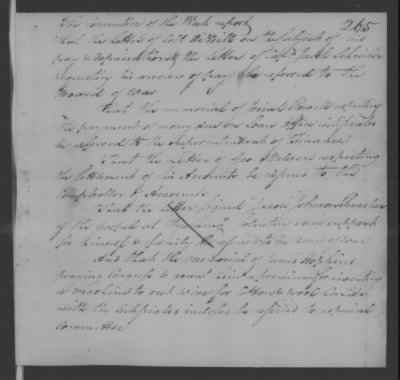 265
The Committee of the Week report
that the letter of Col: on the subject of his
pay & & the letter of Capt. Jacob
his arrears of pay be referred to the
Board of War
That the memorial of Josiah respecting
the payment of money due on Loan Office certificates
be referred to the Superintendant of Finance
That the Letter of Geo: respecting
the settlement of his Accounts be referred to the
Comptroller of Accounts
That the letter signed Jacob Johnson Preacher
of the Gospel at some support
for himself & family be referred to the Board of War
And that the memorial of James Hopkins
praying Congress to grant him a premium for inventing
a machine to cut wire for Cotton & wool Cards
with the certificates inclosed be referred to a special
Committee